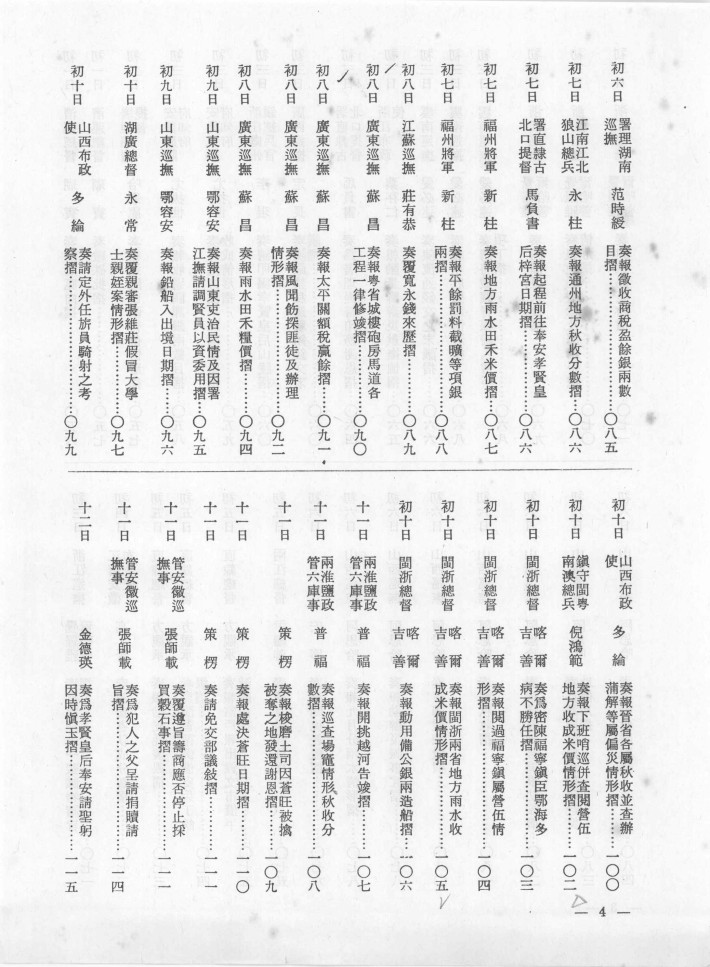 初六日 署理湖南巡撫 范時綬 奏報徵收商稅盈餘銀兩數目摺……〇八五
初七日 江南江北狼山總兵 永柱 奏報通州地方秋收分數摺……〇八六
初七日 署直隷古北口提督 馬負書 奏報起程前往奉安孝賢皇后梓宮日期摺……〇八六
初七日 福州將軍 新柱 奏報地方雨水田禾米價摺……〇八七
初七日 福州將軍 新柱 奏報平餘罰料截曠等項銀兩摺……〇八八
初八日 江蘇巡撫 莊有恭 奏覆寬永錢來歷摺……〇八九
初八日 廣東巡撫 蘇昌 奏報粤省城樓砲房馬道各工程一律修竣摺……〇九〇
初八日 廣東巡撫 蘇昌 奏報太平關額稅贏餘摺……〇九一
初八日 廣東巡撫 蘇昌 奏報風聞飭探匪徒及辦理情形摺……〇九二
初八日 廣東巡撫 蘇昌 奏報雨水田禾糧價摺……〇九四
初九日 山東巡撫 鄂容安 奏報山東吏治民情及因署江撫請調賢員以資委用摺……〇九五
初九日 山東巡撫 鄂容安 奏報鉛船入出境日期摺……〇九六
初十日 湖廣總督 永常 奏覆親審張維莊假冒大學士親姪案情形摺……〇九七
初十日 山西布政使 多綸 奏請定外任旂員騎射之考察摺……〇九九
初十日 山西布政使 多綸 奏報晉省各屬秋收並查辦蒲解等屬偏災情形摺……一〇〇
初十日 鎮守閩粤南澳總兵 倪鴻範 奏報下班哨巡併查閱營伍地方收成米價情形摺……一〇二
初十日 閩浙總督 喀爾吉善 奏爲密陳福寧鎮臣鄂海多病不勝任摺……一〇三
初十日 閩浙總督 喀爾吉善 奏報閱過福寧鎮屬營伍情形摺……一〇四
初十日 閩浙總督 喀爾吉善 奏報閩浙兩省地方雨水收成米價情形摺……一〇五
初十日 閩浙總督 喀爾吉善 奏報動用備公銀兩造船摺……一〇六
十一日 兩淮鹽政管六庫事 普福 奏報開挑越河告竣摺……一〇七
十一日 兩淮鹽政管六庫事 普福 奏報巡查場竈情形秋收分數摺……一〇八
十一日 策楞 奏報梭磨土司因蒼旺被擒被奪之地發還謝恩摺……一〇九
十一日 策楞 奏報處決蒼旺日期摺……一一〇
十一日 策楞 奏請免交部議敍摺……一一一
十一日 管安徽巡撫事 張師載 奏覆遵旨籌商應否停止採買穀石事摺……一一一
十一日 管安徽巡撫事 張師載 奏爲犯人之父呈請捐贖請旨摺……一一四
十二日 金德瑛 奏爲孝賢皇后奉安請聖躬因時愼玉摺……一一五
— 4 —